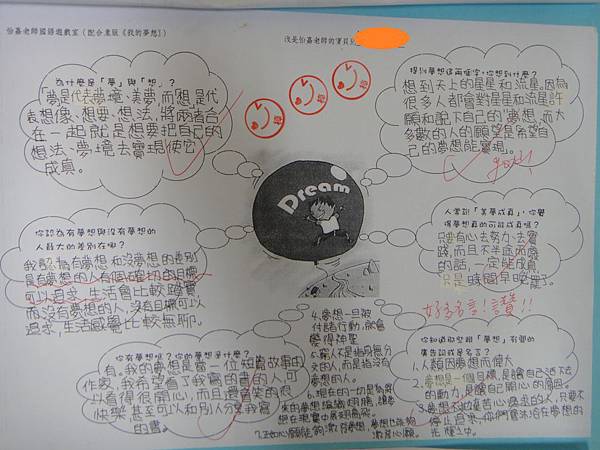 怡嘉老師國語遊戲室（配合康版《我的夢想》）
我是怡嘉老師的寶貝
為什麼是「夢」與「想」？
「夢」是代表夢境、美夢，而「想」是代
表想像、想要、想法，將兩者合
在一起就是想要把自己的
想法、夢境去實現，使它
成真。
提到夢想這兩個字，你想到什麼？
想到天上的星星和流星。因為
很多人都會對星星和流星許
願和記下自己的「夢想」，而大
多數的人的願望是希望自
己的夢想能實現。
good!
Dream
你認為有夢想與沒有夢想的
人最大的差別在哪？
我認為有夢想和沒夢想的差別
是有夢想的人有個確切的目標
可以追求，生活會比較踏實，
而沒有夢想的人，沒有目標可以
追求，生活感覺比較無聊。
人常說「美夢成真」，你覺
得夢想真的可能成真嗎？
只要有心去努力、去實
踐，而且不半途而廢
的話，一定能成真，
只是時間早晚
好多名言！讚！！
你有夢想嗎？你的夢想是什麼？
有。我的夢想是當一位短篇故事的
作家，我希望看了我寫的書的人，可
以看得很開心，而且還會笑的很
快樂，甚至可以和別人分享我寫
的書。
你知道哪些跟「夢想」有關的
廣告詞或是名言？
1.人類因夢想而偉大
2.夢想是一個目標，是讓自己活下去
的動力，是讓自己開心的原因。
停止追求，你們會沐浴在夢想的
光輝之中。
4.夢想一旦被
付諸行動，就會
變得神聖
5.窮人不是指身無分
文的人，而是指沒有
夢想的人。
6.現在的一切是為將
來的夢想編織翅膀，讓夢
想在現實中展翅高飛。